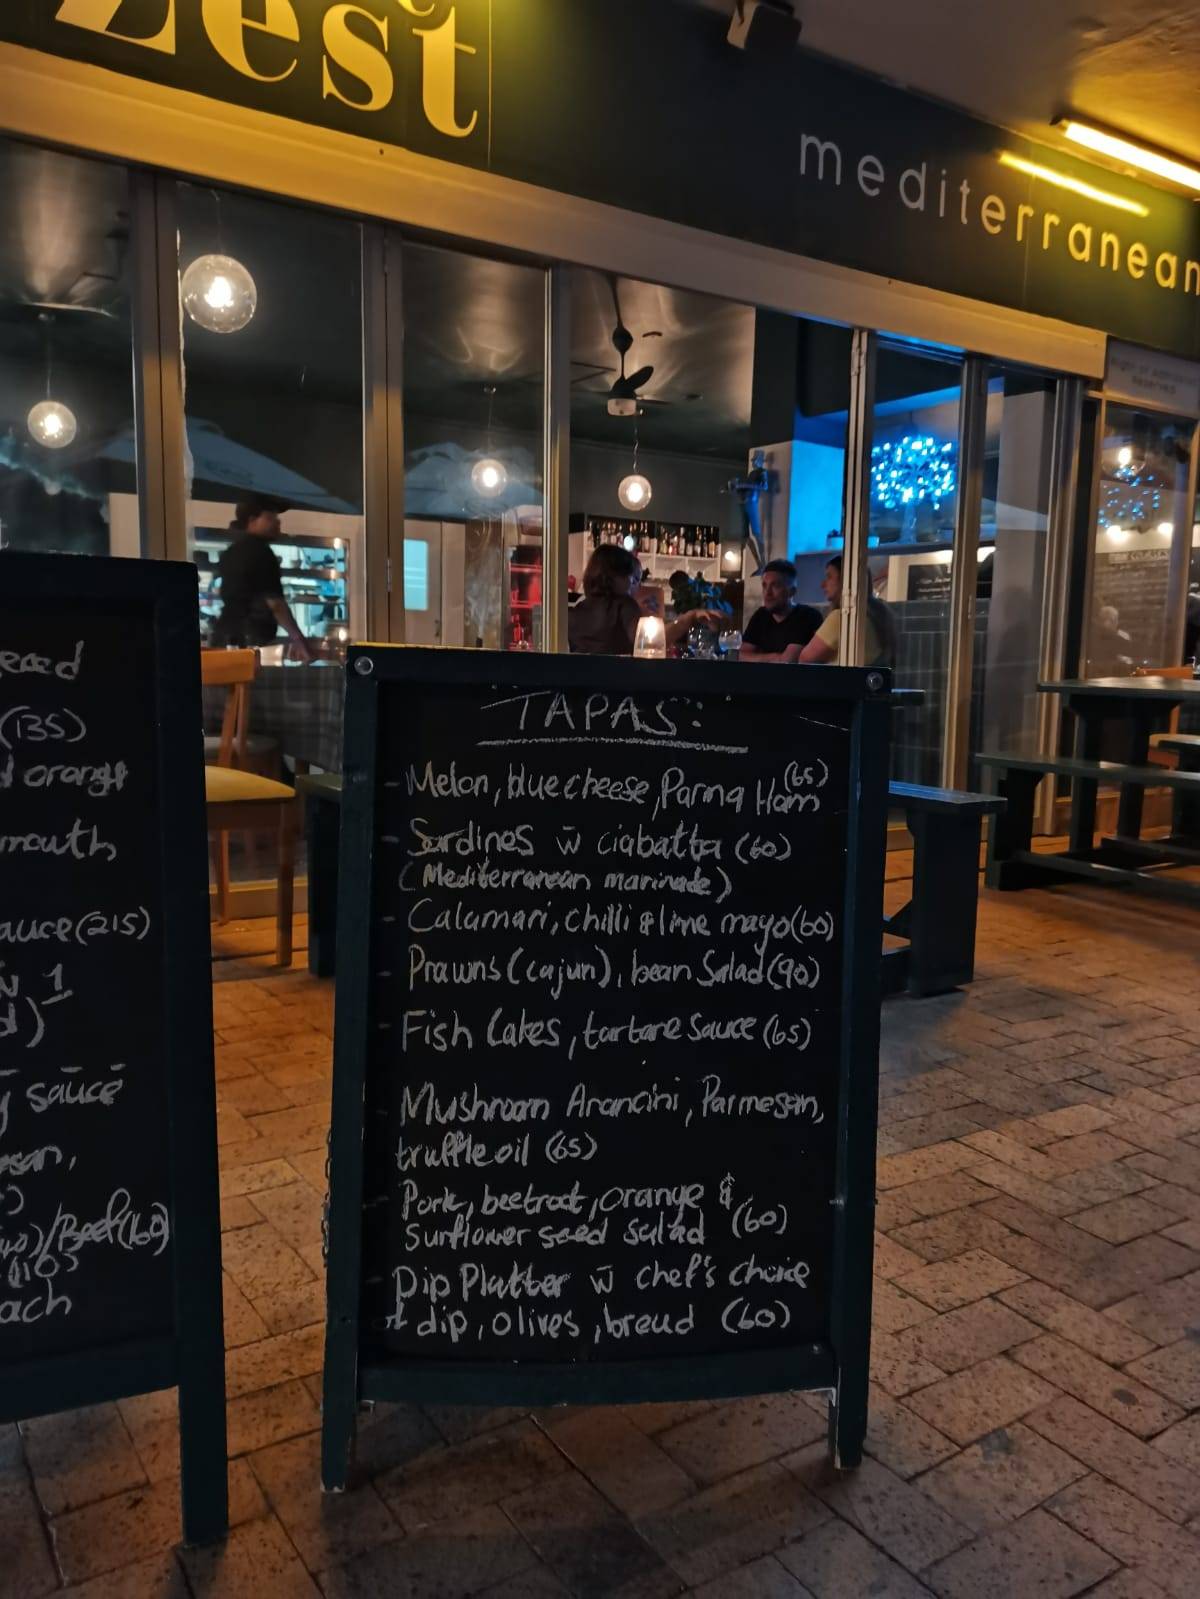 zest
mediterranean
TAPAS:
- Melon, blue cheese, Parma Ham (65)
- Sardines w̄ ciabatta (60)
(Mediterranean marinade)
- Calamari, chilli & lime mayo (60)
- Prawns (cajun), bean Salad (90)
- Fish Cakes, tartare Sauce (65)
- Mushroom Arancini, Parmesan,
truffle oil (65)
- Pork, beetroot, orange &
Sunflower seed salad (60)
- Dip Platter w̄ chef's choice
of dip, olives, bread (60)
(135)
orange
auce (215)
1
d)
y sauce
san,
)/Beef (160)
ach